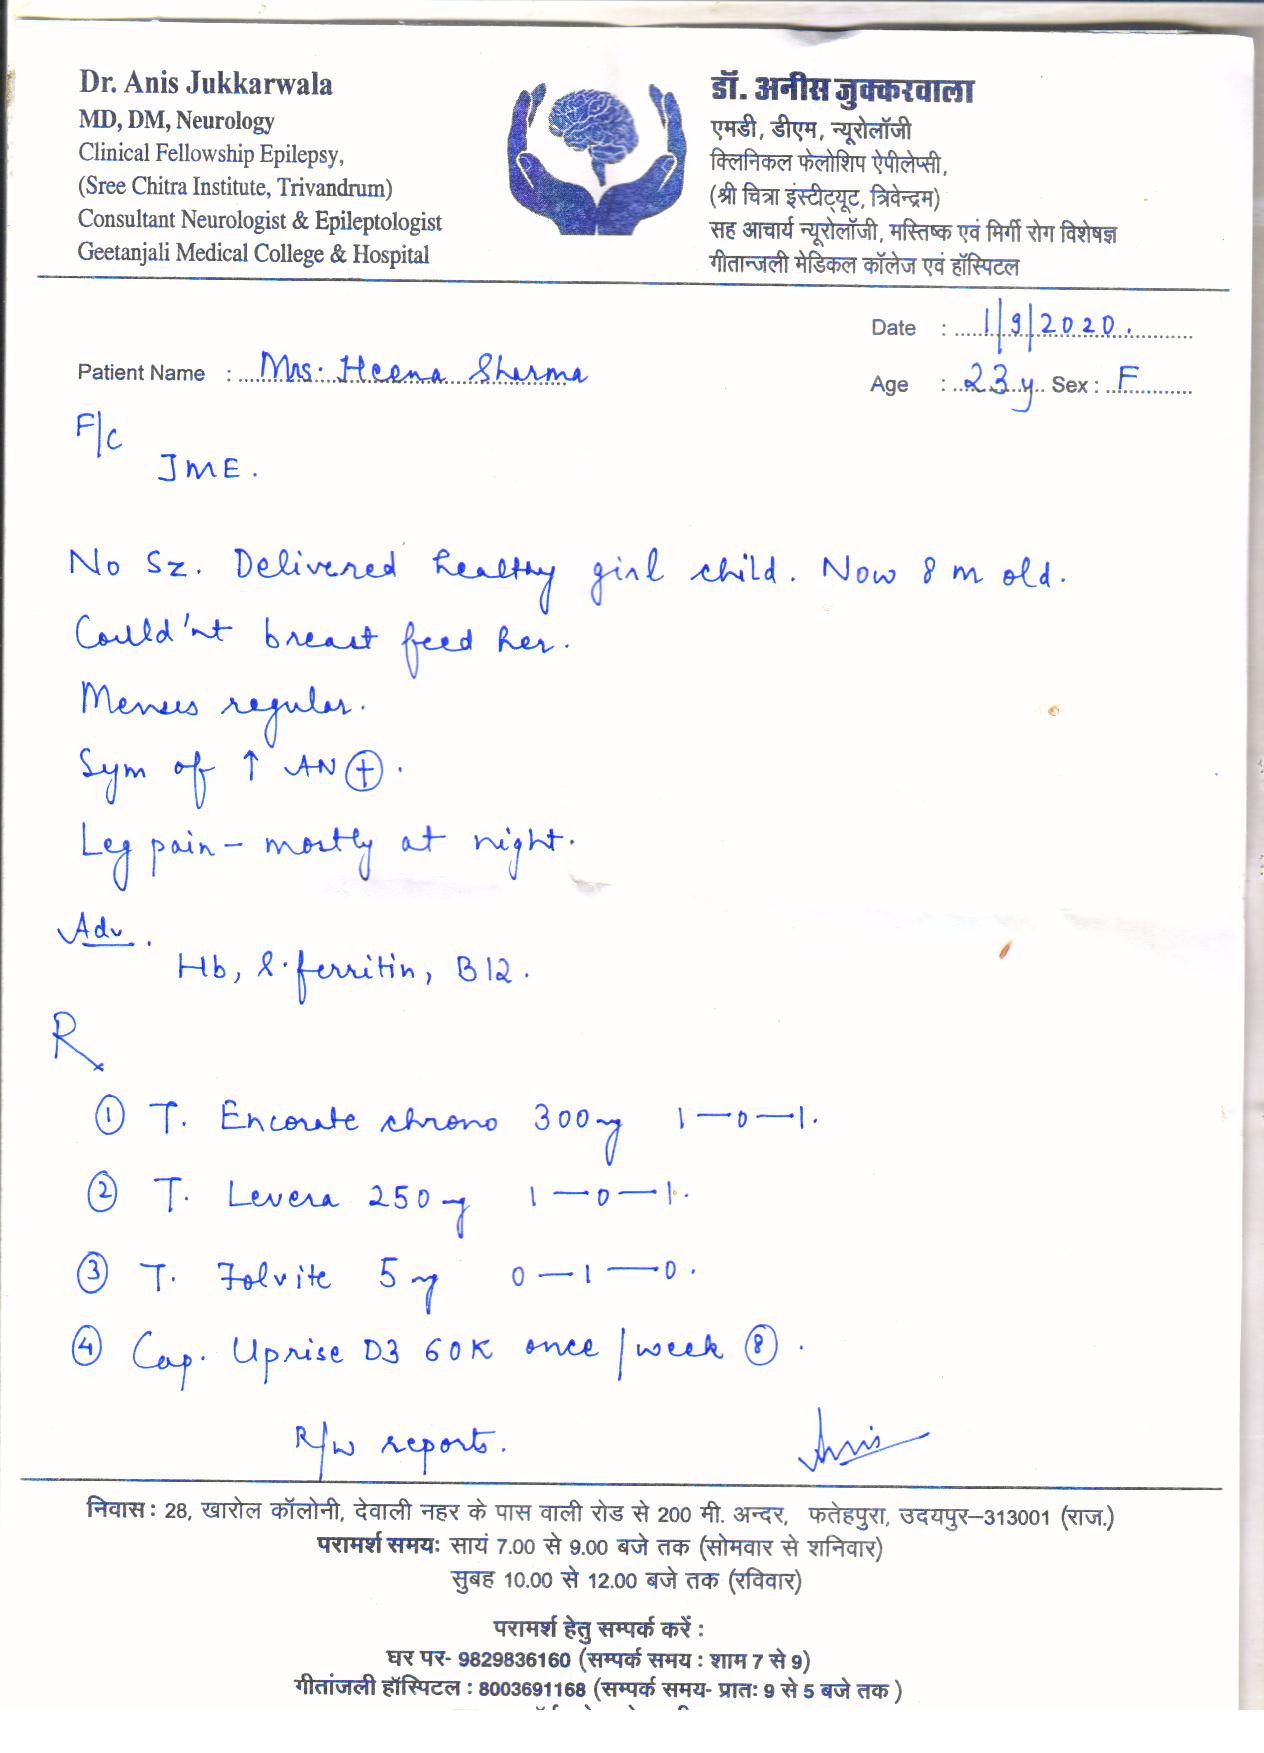 Dr. Anis Jukkarwala
MD, DM, Neurology
Clinical Fellowship Epilepsy,
(Sree Chitra Institute, Trivandrum)
Consultant Neurologist & Epileptologist
Geetanjali Medical College & Hospital
डॉ. अनीस जुक्करवाला
एमडी, डीएम, न्यूरोलॉजी
क्लिनिकल फेलोशिप ऐपीलेप्सी,
(श्री चित्रा इंस्टीट्यूट, त्रिवेन्द्रम)
सह आचार्य न्यूरोलॉजी, मस्तिष्क एवं मिर्गी रोग विशेषज्ञ
गीतान्जली मेडिकल कॉलेज एवं हॉस्पिटल
Date : 1/9/2020.
Patient Name : Mrs. Heena Sharma
Age : 23y Sex : F
F/c
JME.
No Sz. Delivered healthy girl child. Now 8 m old.
Could'nt breast feed her.
Menses regular.
Sym of ↑ AN ⊕.
Leg pain - mostly at night.
Adv.
Hb, S. ferritin, B12.
Rx
① T. Encorate chrono 300mg 1—0—1.
② T. Levera 250mg 1—0—1.
③ T. Folvite 5mg 0—1—0.
④ Cap. Uprise D3 60K once/week ⑧.
R/w reports.
Anis
निवास : 28, खारोल कॉलोनी, देवाली नहर के पास वाली रोड से 200 मी. अन्दर, फतेहपुरा, उदयपुर–313001 (राज.)
परामर्श समयः सायं 7.00 से 9.00 बजे तक (सोमवार से शनिवार)
सुबह 10.00 से 12.00 बजे तक (रविवार)
परामर्श हेतु सम्पर्क करें :
घर पर- 9829836160 (सम्पर्क समय : शाम 7 से 9)
गीतांजली हॉस्पिटल : 8003691168 (सम्पर्क समय- प्रातः 9 से 5 बजे तक )